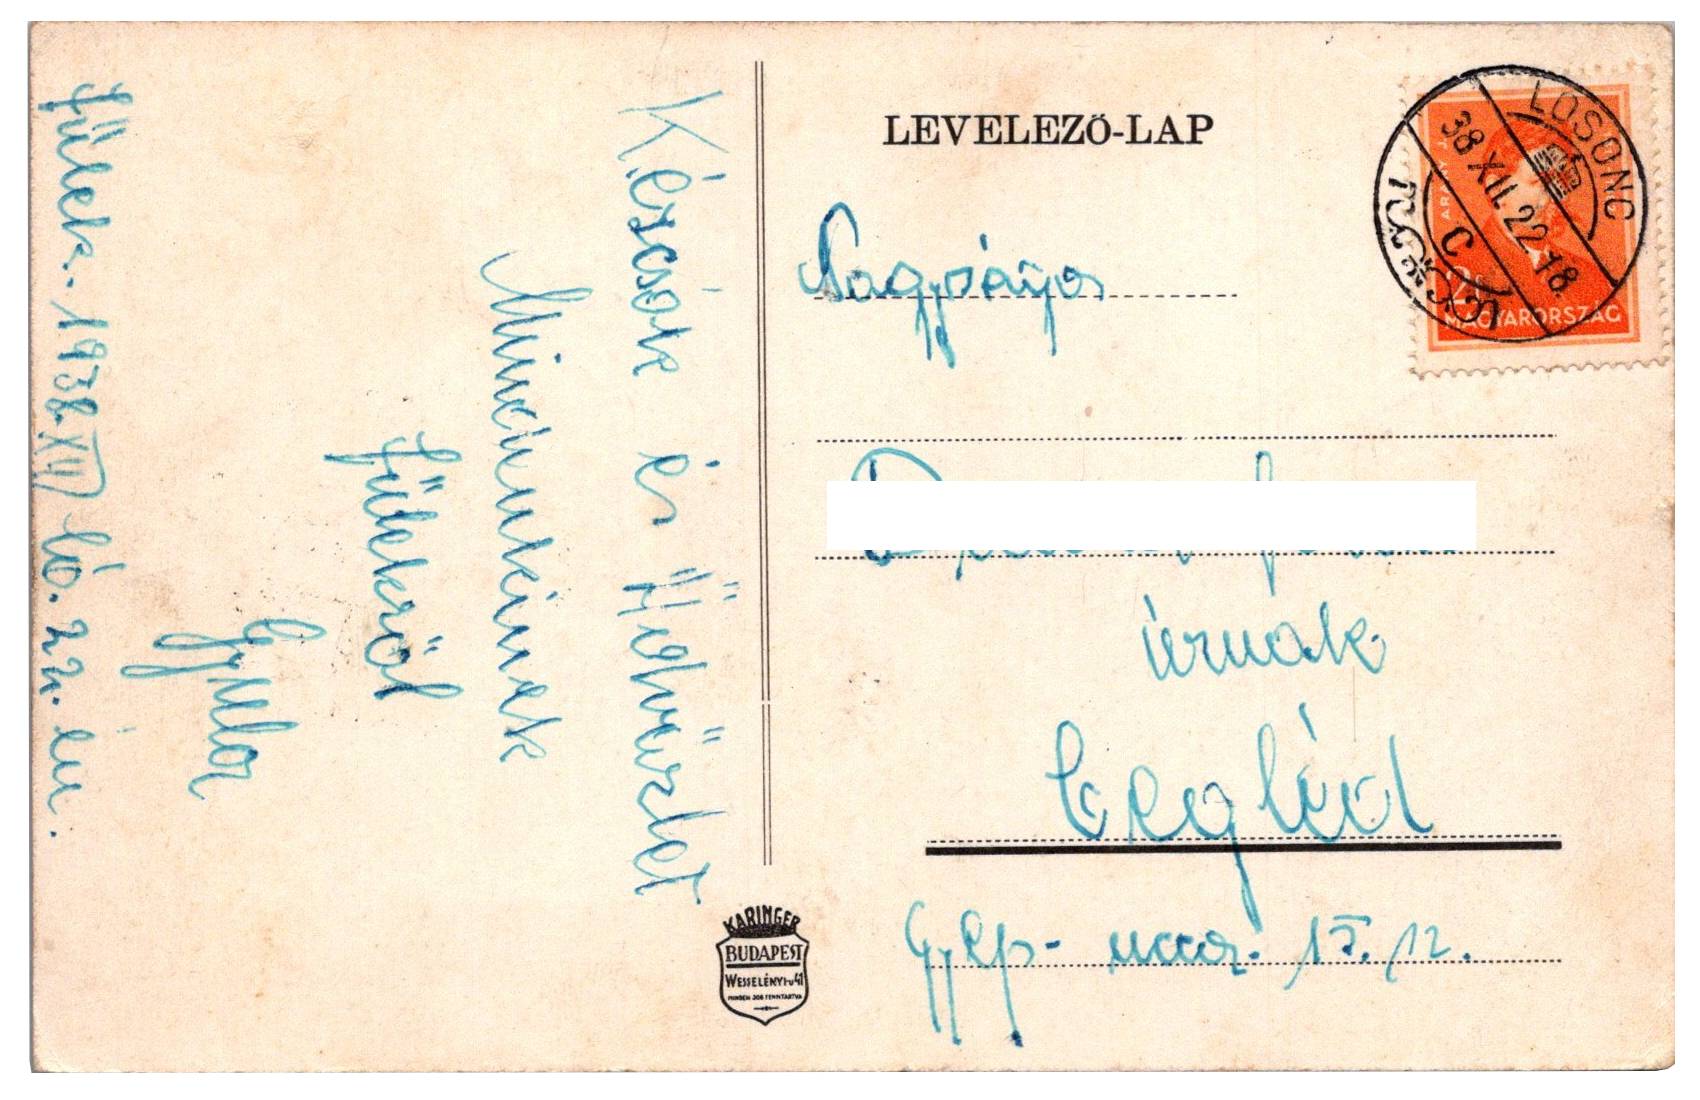 Kézcsók és Üdvözlet
Mindenkinek
Fülekről
Gyula
Fülek. 1938. XII hó. 22. én.
LEVELEZŐ-LAP
Nagyságos
úrnak
Cegléd
Gyep- ucca. 15. /12.
LOSONC
38 XII. 22 18.
C
ARANY J
2
MAGYARORSZÁG
KARINGER
BUDAPEST
WESSELÉNYI-U 41
MINDEN JOG FENNTARTVA